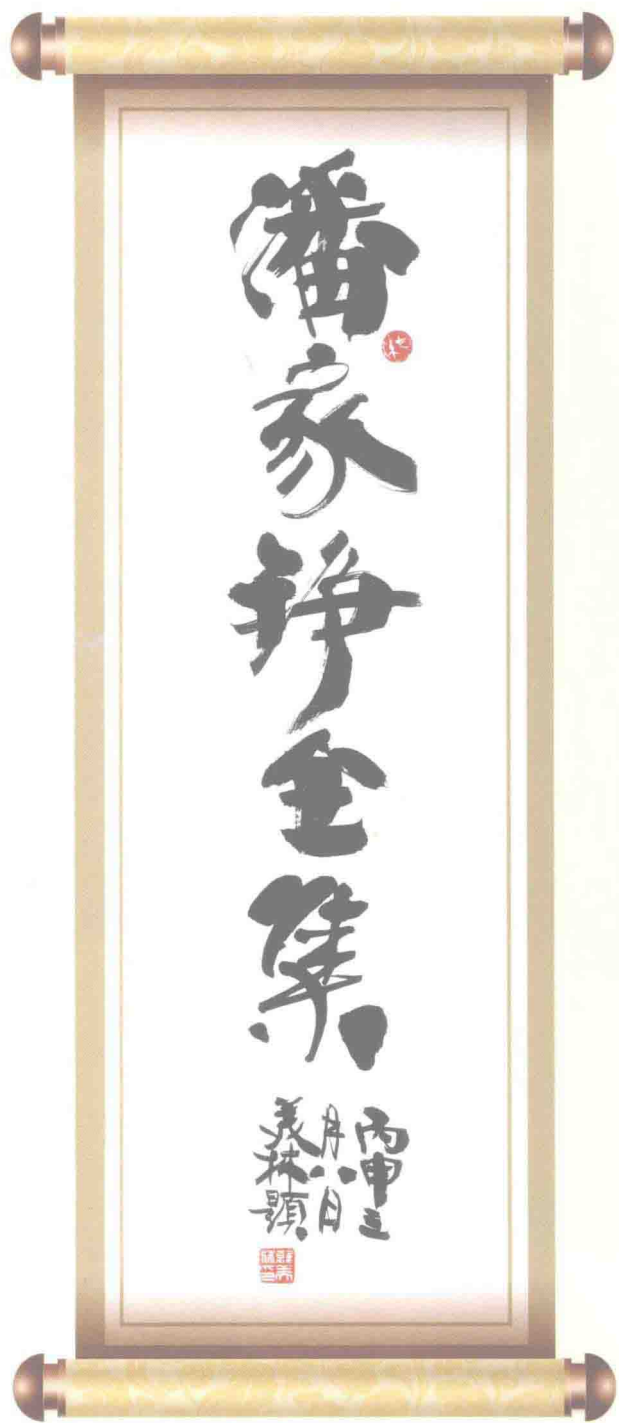 潘家铮全集
丙申三
月八日
义林题